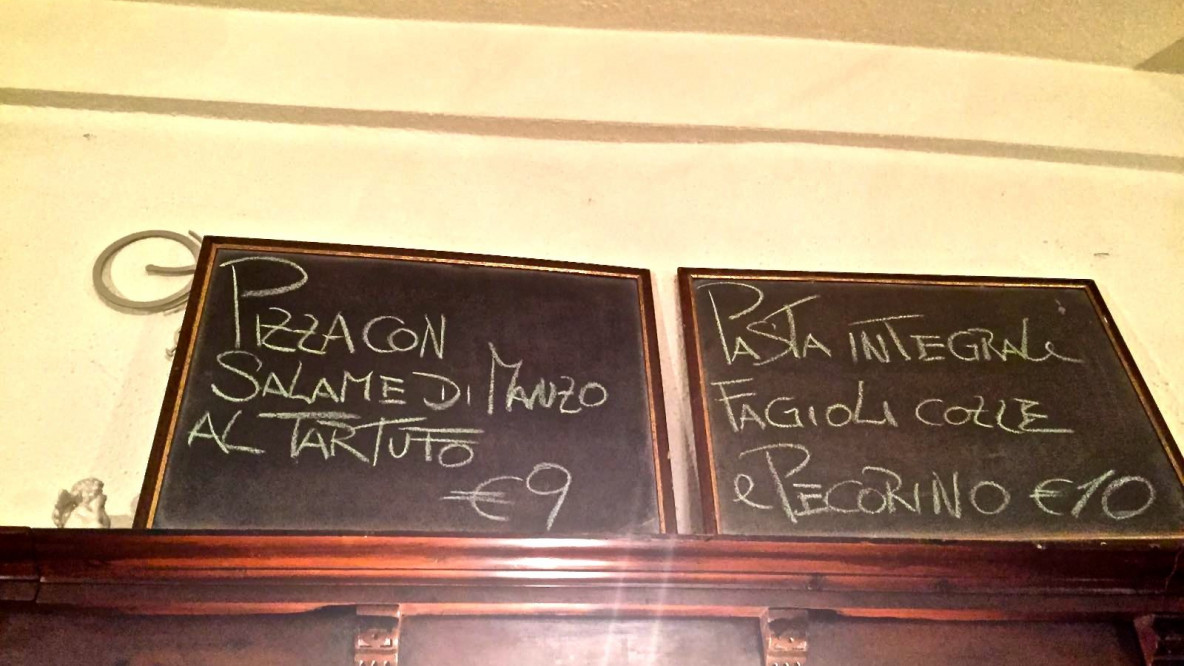 PIZZA CON
SALAME DI MANZO
AL TARTUFO
€9
PASTA INTEGRALE
FAGIOLI COZZE
e PECORINO €10